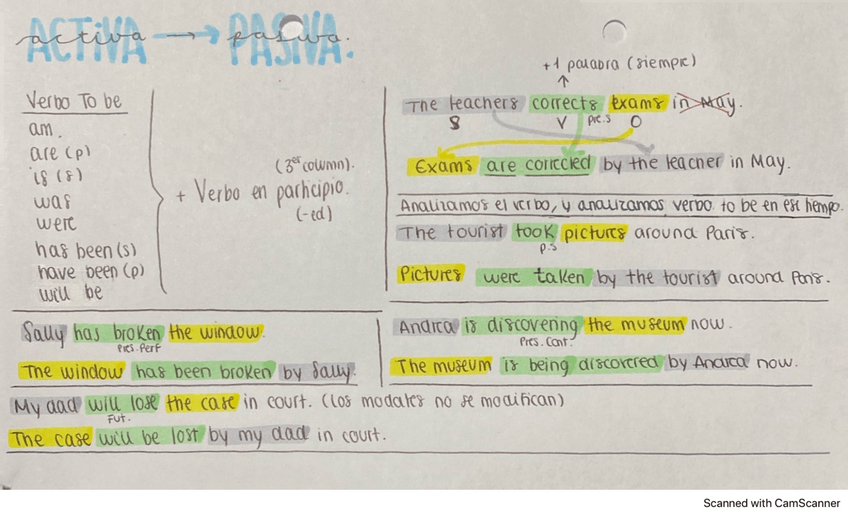 ACTIVA → PASIVA.
activa pasiva.
Verbo To be
am.
are (p)
is (s)
was
were
has been (s)
have been (p)
will be
(3er column).
+ Verbo en participio.
(-ed)
+1 palabra (siempre)
The teachers corrects exams in May.
S V pre.s O
Exams are corrected by the teacher in May.
Analizamos el verbo, y analizamos verbo to be en ese tiempo.
The tourist took pictures around Paris.
p.s
Pictures were taken by the tourist around Paris.
Sally has broken the window.
Pres.Perf
The window has been broken by Sally.
Andrea is discovering the museum now.
Pres.Cont.
The museum is being discovered by Andrea now.
My dad will lose the case in court. (los modales no se modifican)
Fut.
The case will be lost by my dad in court.
Scanned with CamScanner